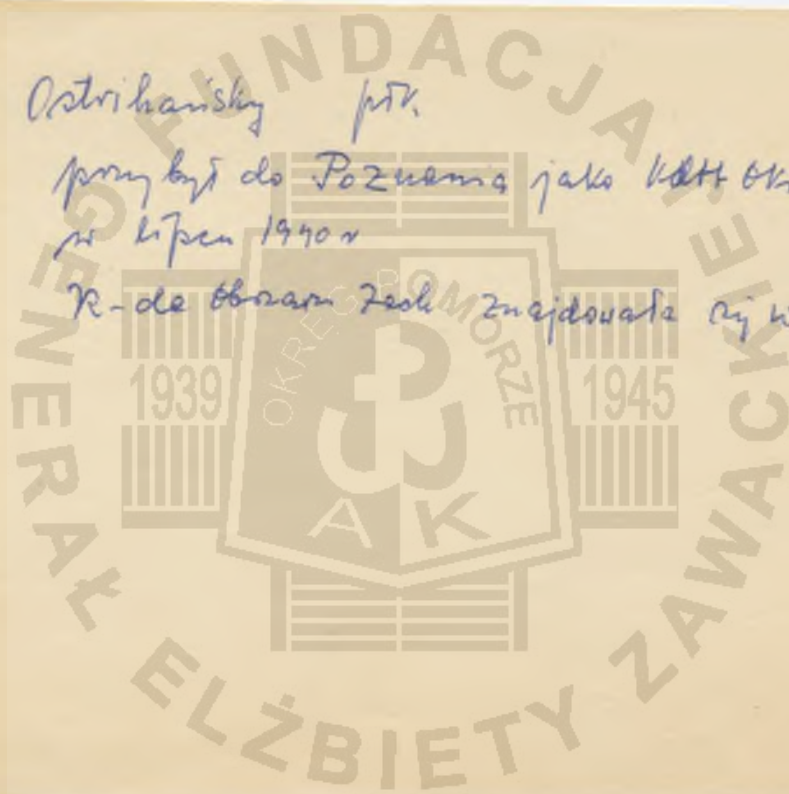 Ostrihansky płk.
przybył do Poznania jako Kdtt Ok
w lipcu 1940 r
K-da Obszaru Zach znajdowała się w
FUNDACJA GENERAŁ ELŻBIETY ZAWACKIEJ
OKRĘG POMORZE
1939
1945
AK